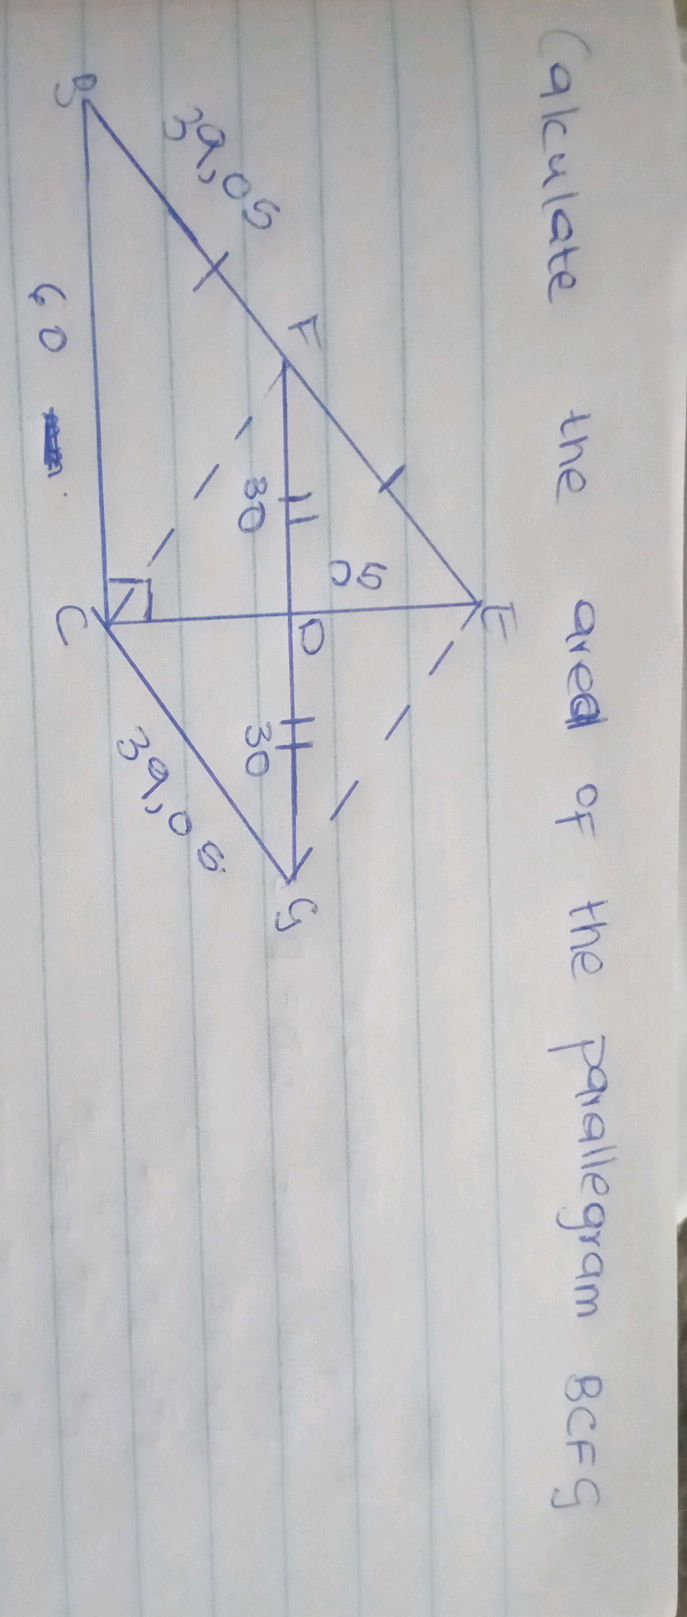 Calculate the area OF the parallegram BCFG
E
50
F
30
D
30
G
39,05
39,05
B
60
C